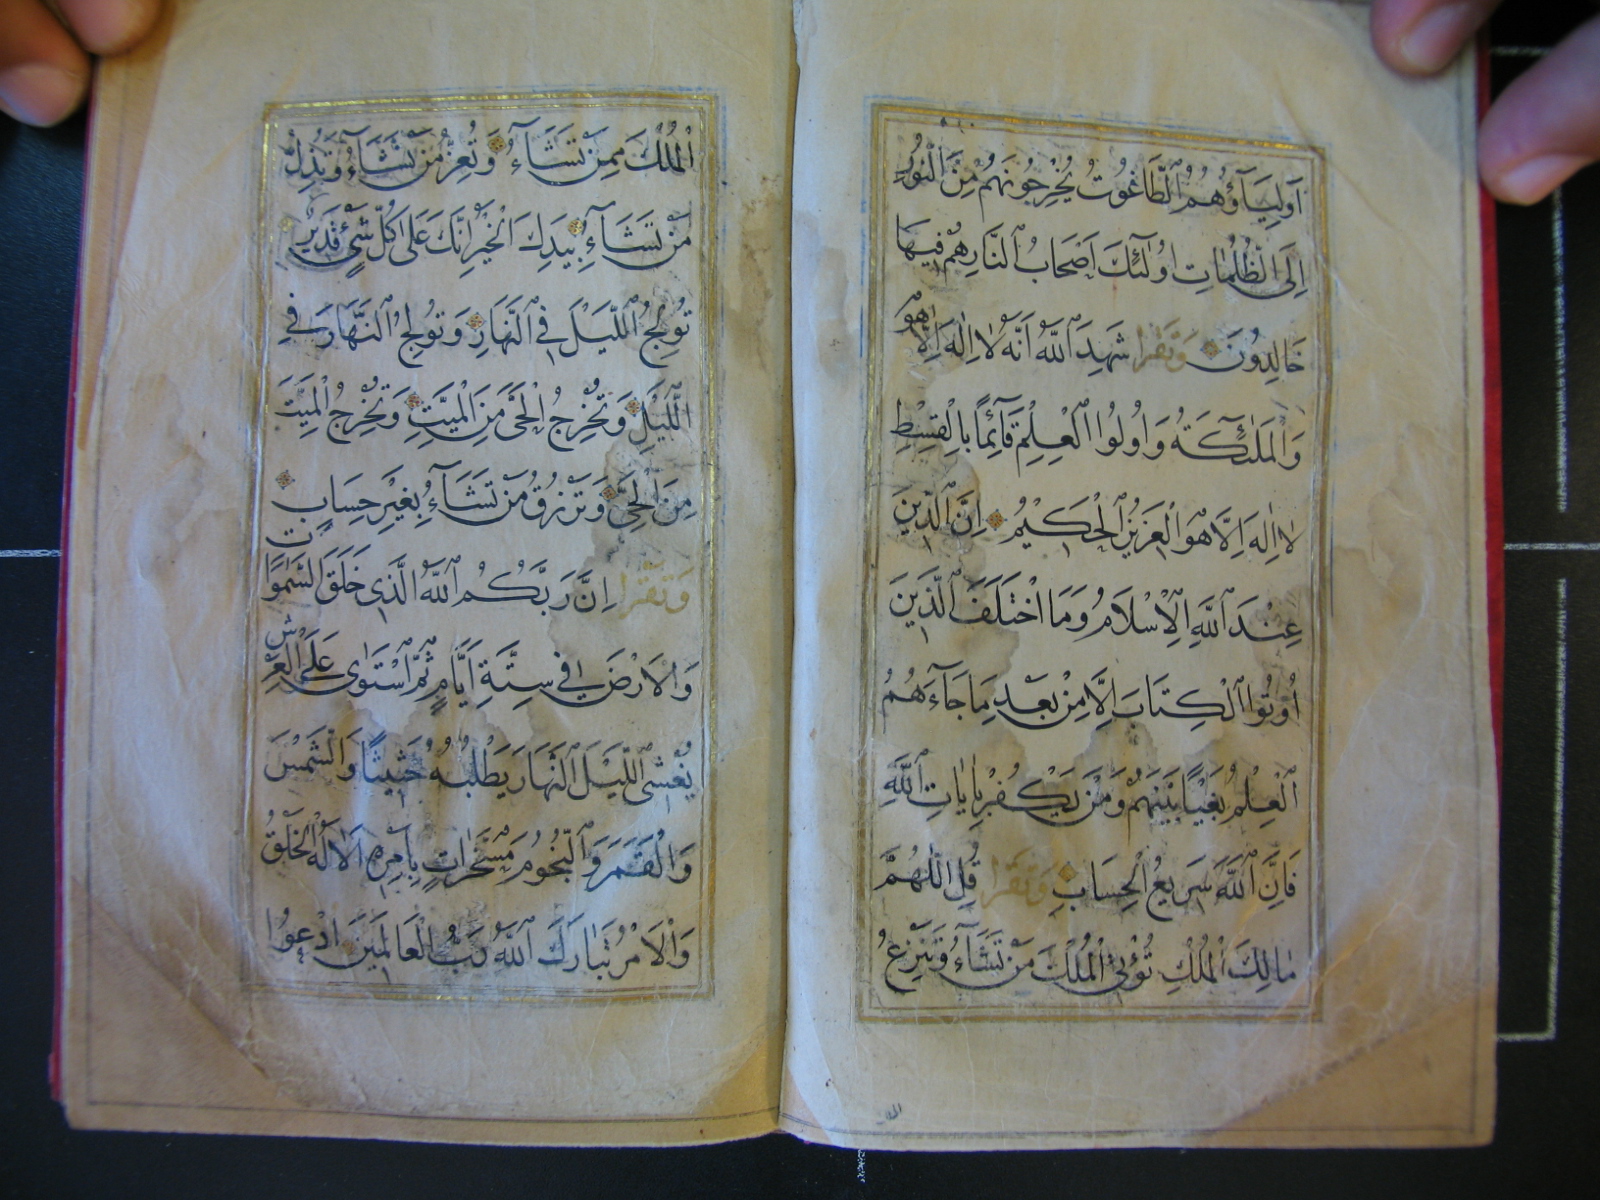 اَوْلِيَآؤُهُمُ الطَّاغُوتُ يُخْرِجُونَهُمْ مِنَ النُّورِ
اِلَى الظُّلُمَاتِ اُولٰئِكَ اَصْحَابُ النَّارِ هُمْ فِيهَا
خَالِدُونَ وَتَقْرَا شَهِدَ اللّٰهُ اَنَّهُ لَا اِلٰهَ اِلَّا هُوَ
وَالْمَلٰئِكَةُ وَاُولُوا الْعِلْمِ قَآئِمًا بِالْقِسْطِ
لَا اِلٰهَ اِلَّا هُوَ الْعَزِيزُ الْحَكِيمُ اِنَّ الدِّينَ
عِنْدَ اللّٰهِ الْاِسْلَامُ وَمَا اخْتَلَفَ الَّذِينَ
اُوتُوا الْكِتَابَ اِلَّا مِنْ بَعْدِ مَا جَآءَهُمُ
الْعِلْمُ بَغْيًا بَيْنَهُمْ وَمَنْ يَكْفُرْ بِاٰيَاتِ اللّٰهِ
فَاِنَّ اللّٰهَ سَرِيعُ الْحِسَابِ وَتَقْرَا قُلِ اللّٰهُمَّ
مَالِكَ الْمُلْكِ تُؤْتِي الْمُلْكَ مَنْ تَشَآءُ وَتَنْزِعُ
الْمُلْكَ مِمَّنْ تَشَآءُ وَتُعِزُّ مَنْ تَشَآءُ وَتُذِلُّ
مَنْ تَشَآءُ بِيَدِكَ الْخَيْرُ اِنَّكَ عَلٰى كُلِّ شَيْءٍ قَدِيرٌ
تُولِجُ اللَّيْلَ فِي النَّهَارِ وَتُولِجُ النَّهَارَ فِي
اللَّيْلِ وَتُخْرِجُ الْحَيَّ مِنَ الْمَيِّتِ وَتُخْرِجُ الْمَيِّتَ
مِنَ الْحَيِّ وَتَرْزُقُ مَنْ تَشَآءُ بِغَيْرِ حِسَابٍ
وَتَقْرَا اِنَّ رَبَّكُمُ اللّٰهُ الَّذِي خَلَقَ السَّمٰوَاتِ
وَالْاَرْضَ فِي سِتَّةِ اَيَّامٍ ثُمَّ اسْتَوٰى عَلَى الْعَرْشِ
يُغْشِي اللَّيْلَ النَّهَارَ يَطْلُبُهُ حَثِيثًا وَالشَّمْسَ
وَالْقَمَرَ وَالنُّجُومَ مُسَخَّرَاتٍ بِاَمْرِهِ اَلَا لَهُ الْخَلْقُ
وَالْاَمْرُ تَبَارَكَ اللّٰهُ رَبُّ الْعَالَمِينَ ادْعُوا